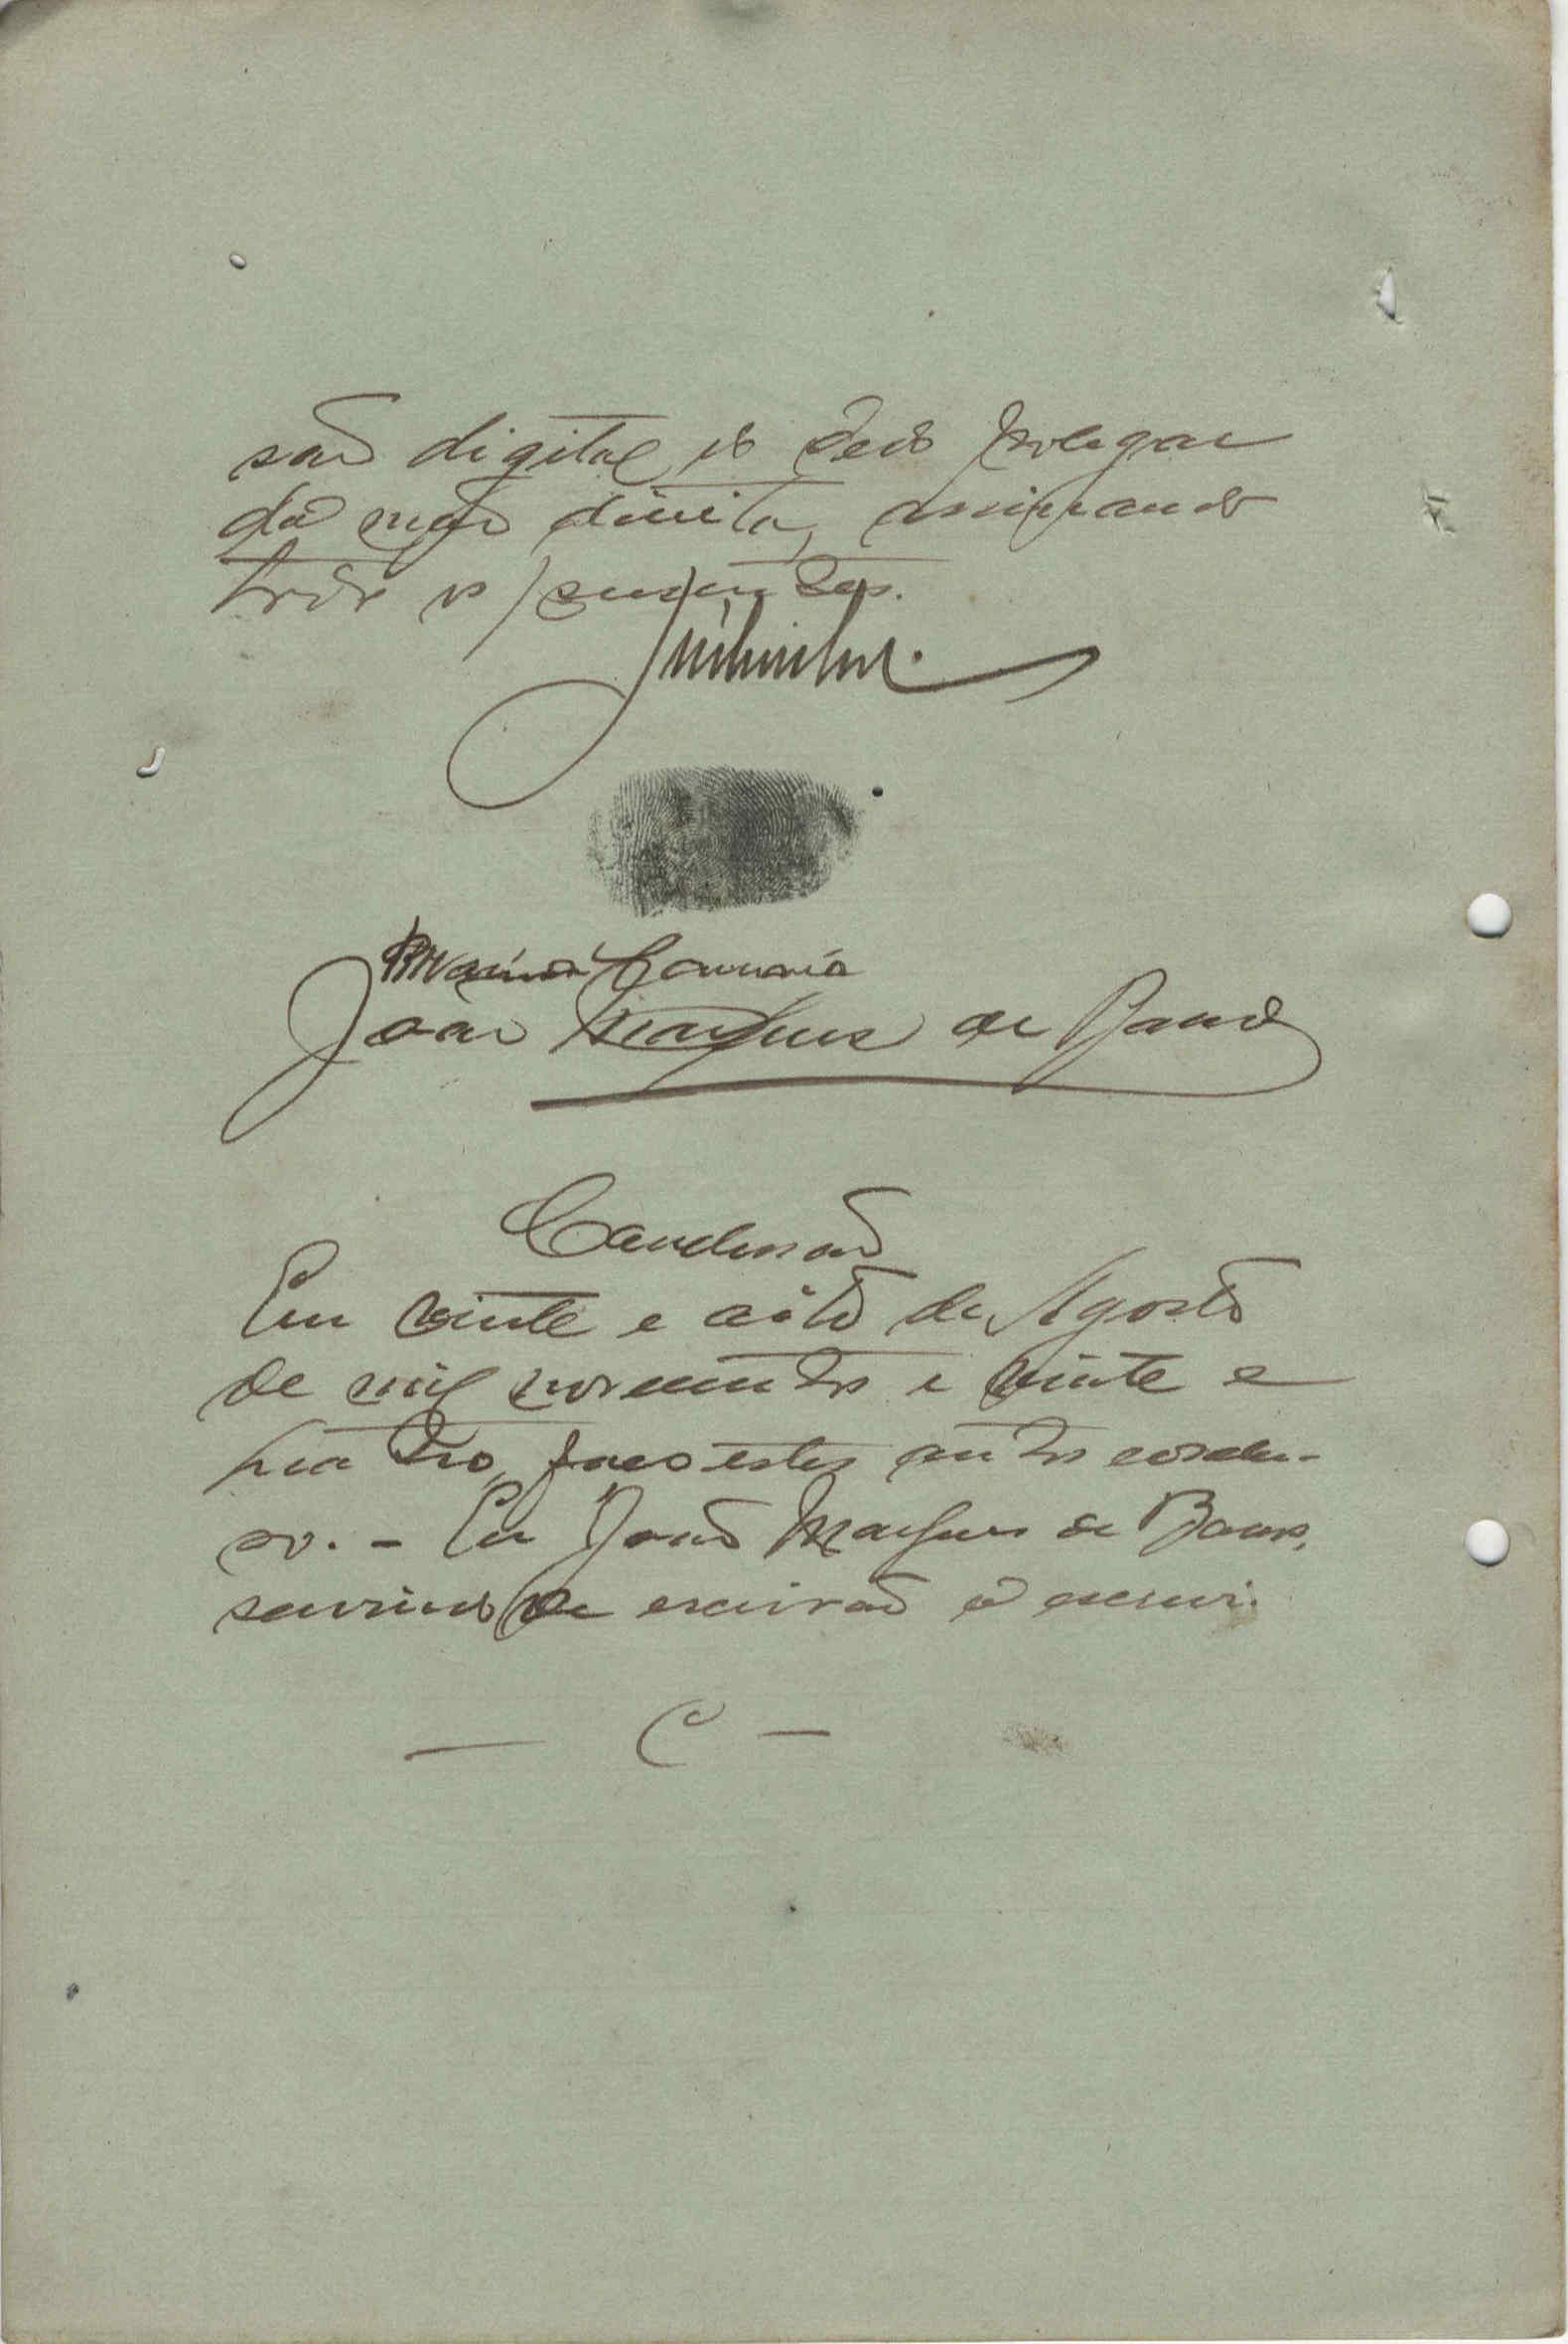 são digital do dedo polegar
da mão direita, assignando
todos os presentes.
João Marques de Barros
Conclusão
Em vinte e oito de Agosto
de mil novecentos e vinte e
quatro, faço estes autos conclu-
sos. - Eu João Marques de Barros,
servindo de escrivão o escrevi.
— C —